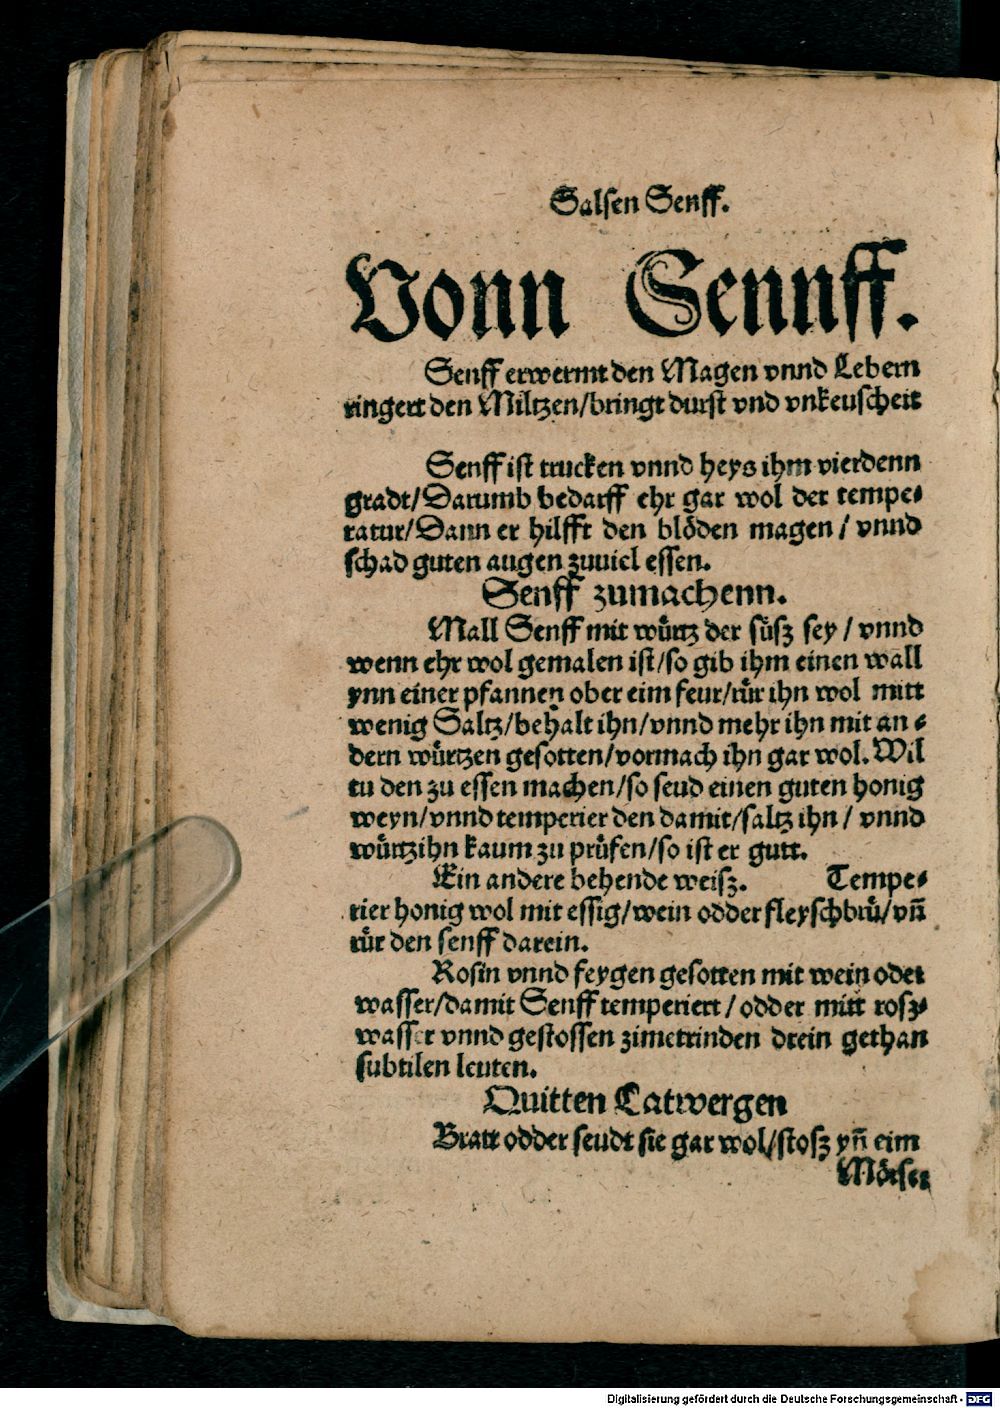 Salsen Senff.
Vonn Sennff.
Senff erwermt den Magen vnnd Lebern
ringert den Miltzen/bringt durst vnd vnkeuscheit
Senff ist trucken vnnd heys ihm vierdenn
gradt/Darumb bedarff ehr gar wol der tempe⸗
ratur/Dann er hilfft den blöden magen / vnnd
schad guten augen zuuiel essen.
Senff zumachenn.
Mall Senff mit würtz der süsz sey / vnnd
wenn ehr wol gemalen ist/so gib ihm einen wall
ynn einer pfannen ober eim feur/rür ihn wol mitt
wenig Saltz/behalt ihn/vnnd mehr ihn mit an ⸗
dern würtzen gesotten/vormach ihn gar wol. Wil
tu den zu essen machen/so seud einen guten honig
weyn/vnnd temperier den damit/saltz ihn / vnnd
würtzihn kaum zu prüfen/so ist er gutt.
Ein andere behende weisz. Tempe⸗
rier honig wol mit essig/wein odder fleyschbrü/vñ
rür den senff darein.
Rosin vnnd feygen gesotten mit wein oder
wasser/damit Senff temperiert / odder mitt rosz⸗
wasser vnnd gestossen zimetrinden drein gethan
subtilen leuten.
Quitten Latwergen
Bratt odder seudt sie gar wol/stosz yñ eim
Mörser
Digitalisierung gefördert durch die Deutsche Forschungsgemeinschaft - DFG